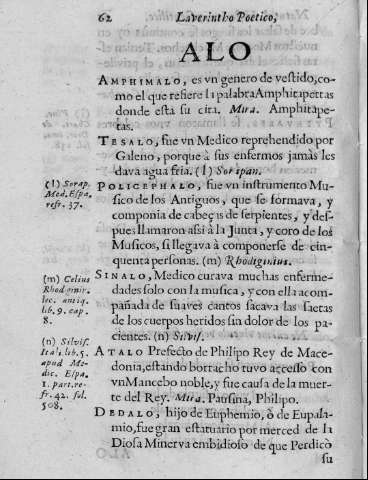 62 Laverintho Poetico,
ALO
AMPHIMALO, es vn genero de vestido, co-
mo el que refiere la palabra Amphitapetras
donde està su cita. Mira. Amphitape-
tas.
TESALO, fue vn Medico reprehendido por
Galeno, porque à sus enfermos jamàs les
dava agua fria. (l) Soripan.
(l) Sorap.
Med. Espa.
refr. 37.
POLICEPHALO, fue vn instrumento Mu-
sico de los Antiguos, que se formava, y
componia de cabeças de serpientes, y des-
pues llamaron assi à la Junta, y coro de los
Musicos, si llegava à componerse de cin-
quenta personas. (m) Rhodiginius.
(m) Celius
Rhodiginir.
lec. antiq.
lib. 9. cap.
8.
SINALO, Medico curava muchas enferme-
dades solo con la musica, y con ella acom-
pañada de suaves cantos sacava las saetas
de los cuerpos heridos sin dolor de los pa-
cientes. (n) Silvis.
(n) Silvis.
Ital. lib. 5.
apud Me-
dic. Espa.
1. part. re-
fr. 42. fol.
508.
ATALO Prefecto de Philipo Rey de Mace-
donia, estando borracho tuvo accesso con
vn Mancebo noble, y fue causa de la muer-
te del Rey. Mira. Pausina, Philipo.
DEDALO, hijo de Euphemio, ò de Eupala-
mio, fue gran estatuario por merced de la
Diosa Minerva embidioso de que Perdicò
su